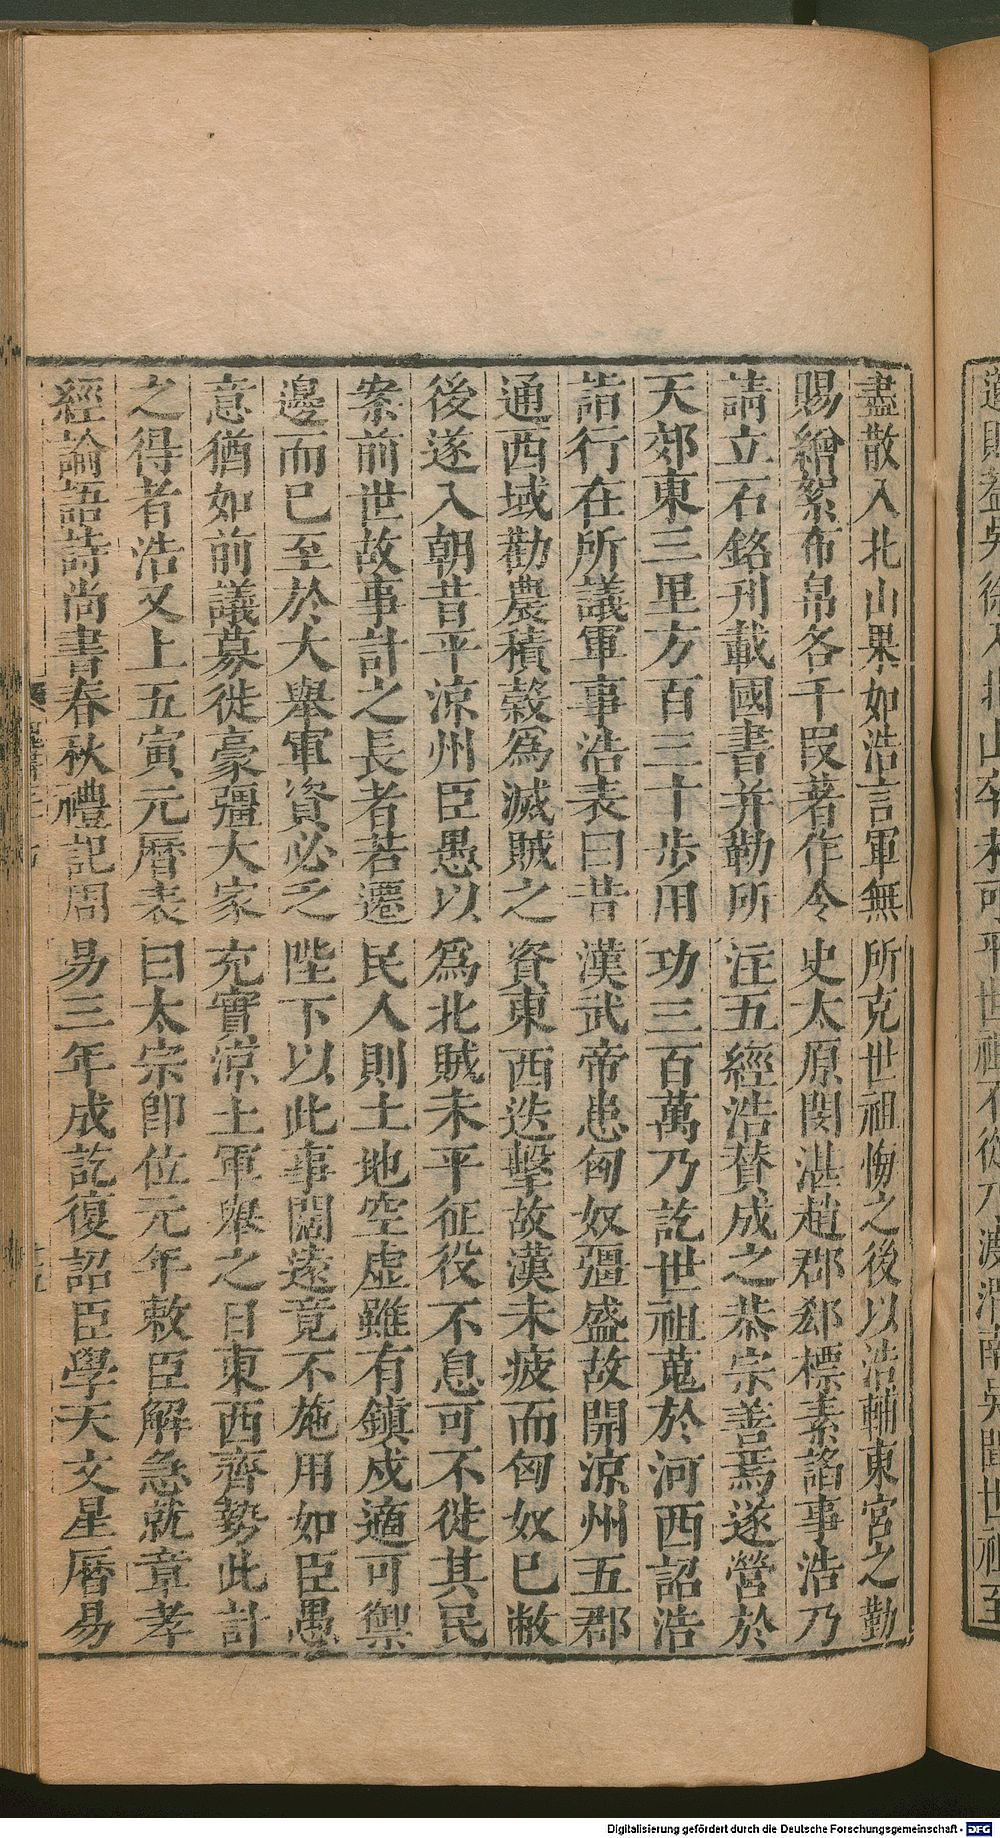 盡散入北山果如浩言軍無所克世祖悔之後以浩輔東宮之勤
賜繒絮布帛各千段著作令史太原閔湛趙郡郄標素諂事浩乃
請立石銘刊載國書并勒所注五經浩贊成之恭宗善焉遂營於
天郊東三里方百三十步用功三百萬乃訖世祖蒐於河西詔浩
詣行在所議軍事浩表曰昔漢武帝患匈奴彊盛故開涼州五郡
通西域勸農積穀爲滅賊之資東西迭擊故漢未疲而匈奴已敝
後遂入朝昔平涼州臣愚以爲北賊未平征役不息可不徙其民
案前世故事計之長者若遷民人則土地空虛雖有鎮戍適可禦
邊而已至於大舉軍資必乏陛下以此事闊遠竟不施用如臣愚
意猶如前議募徙豪彊大家充實涼土軍舉之日東西齊勢此計
之得者浩又上五寅元曆表曰太宗卽位元年敕臣解急就章孝
經論語詩尚書春秋禮記周易三年成訖復詔臣學天文星曆易
Digitalisierung gefördert durch die Deutsche Forschungsgemeinschaft - DFG